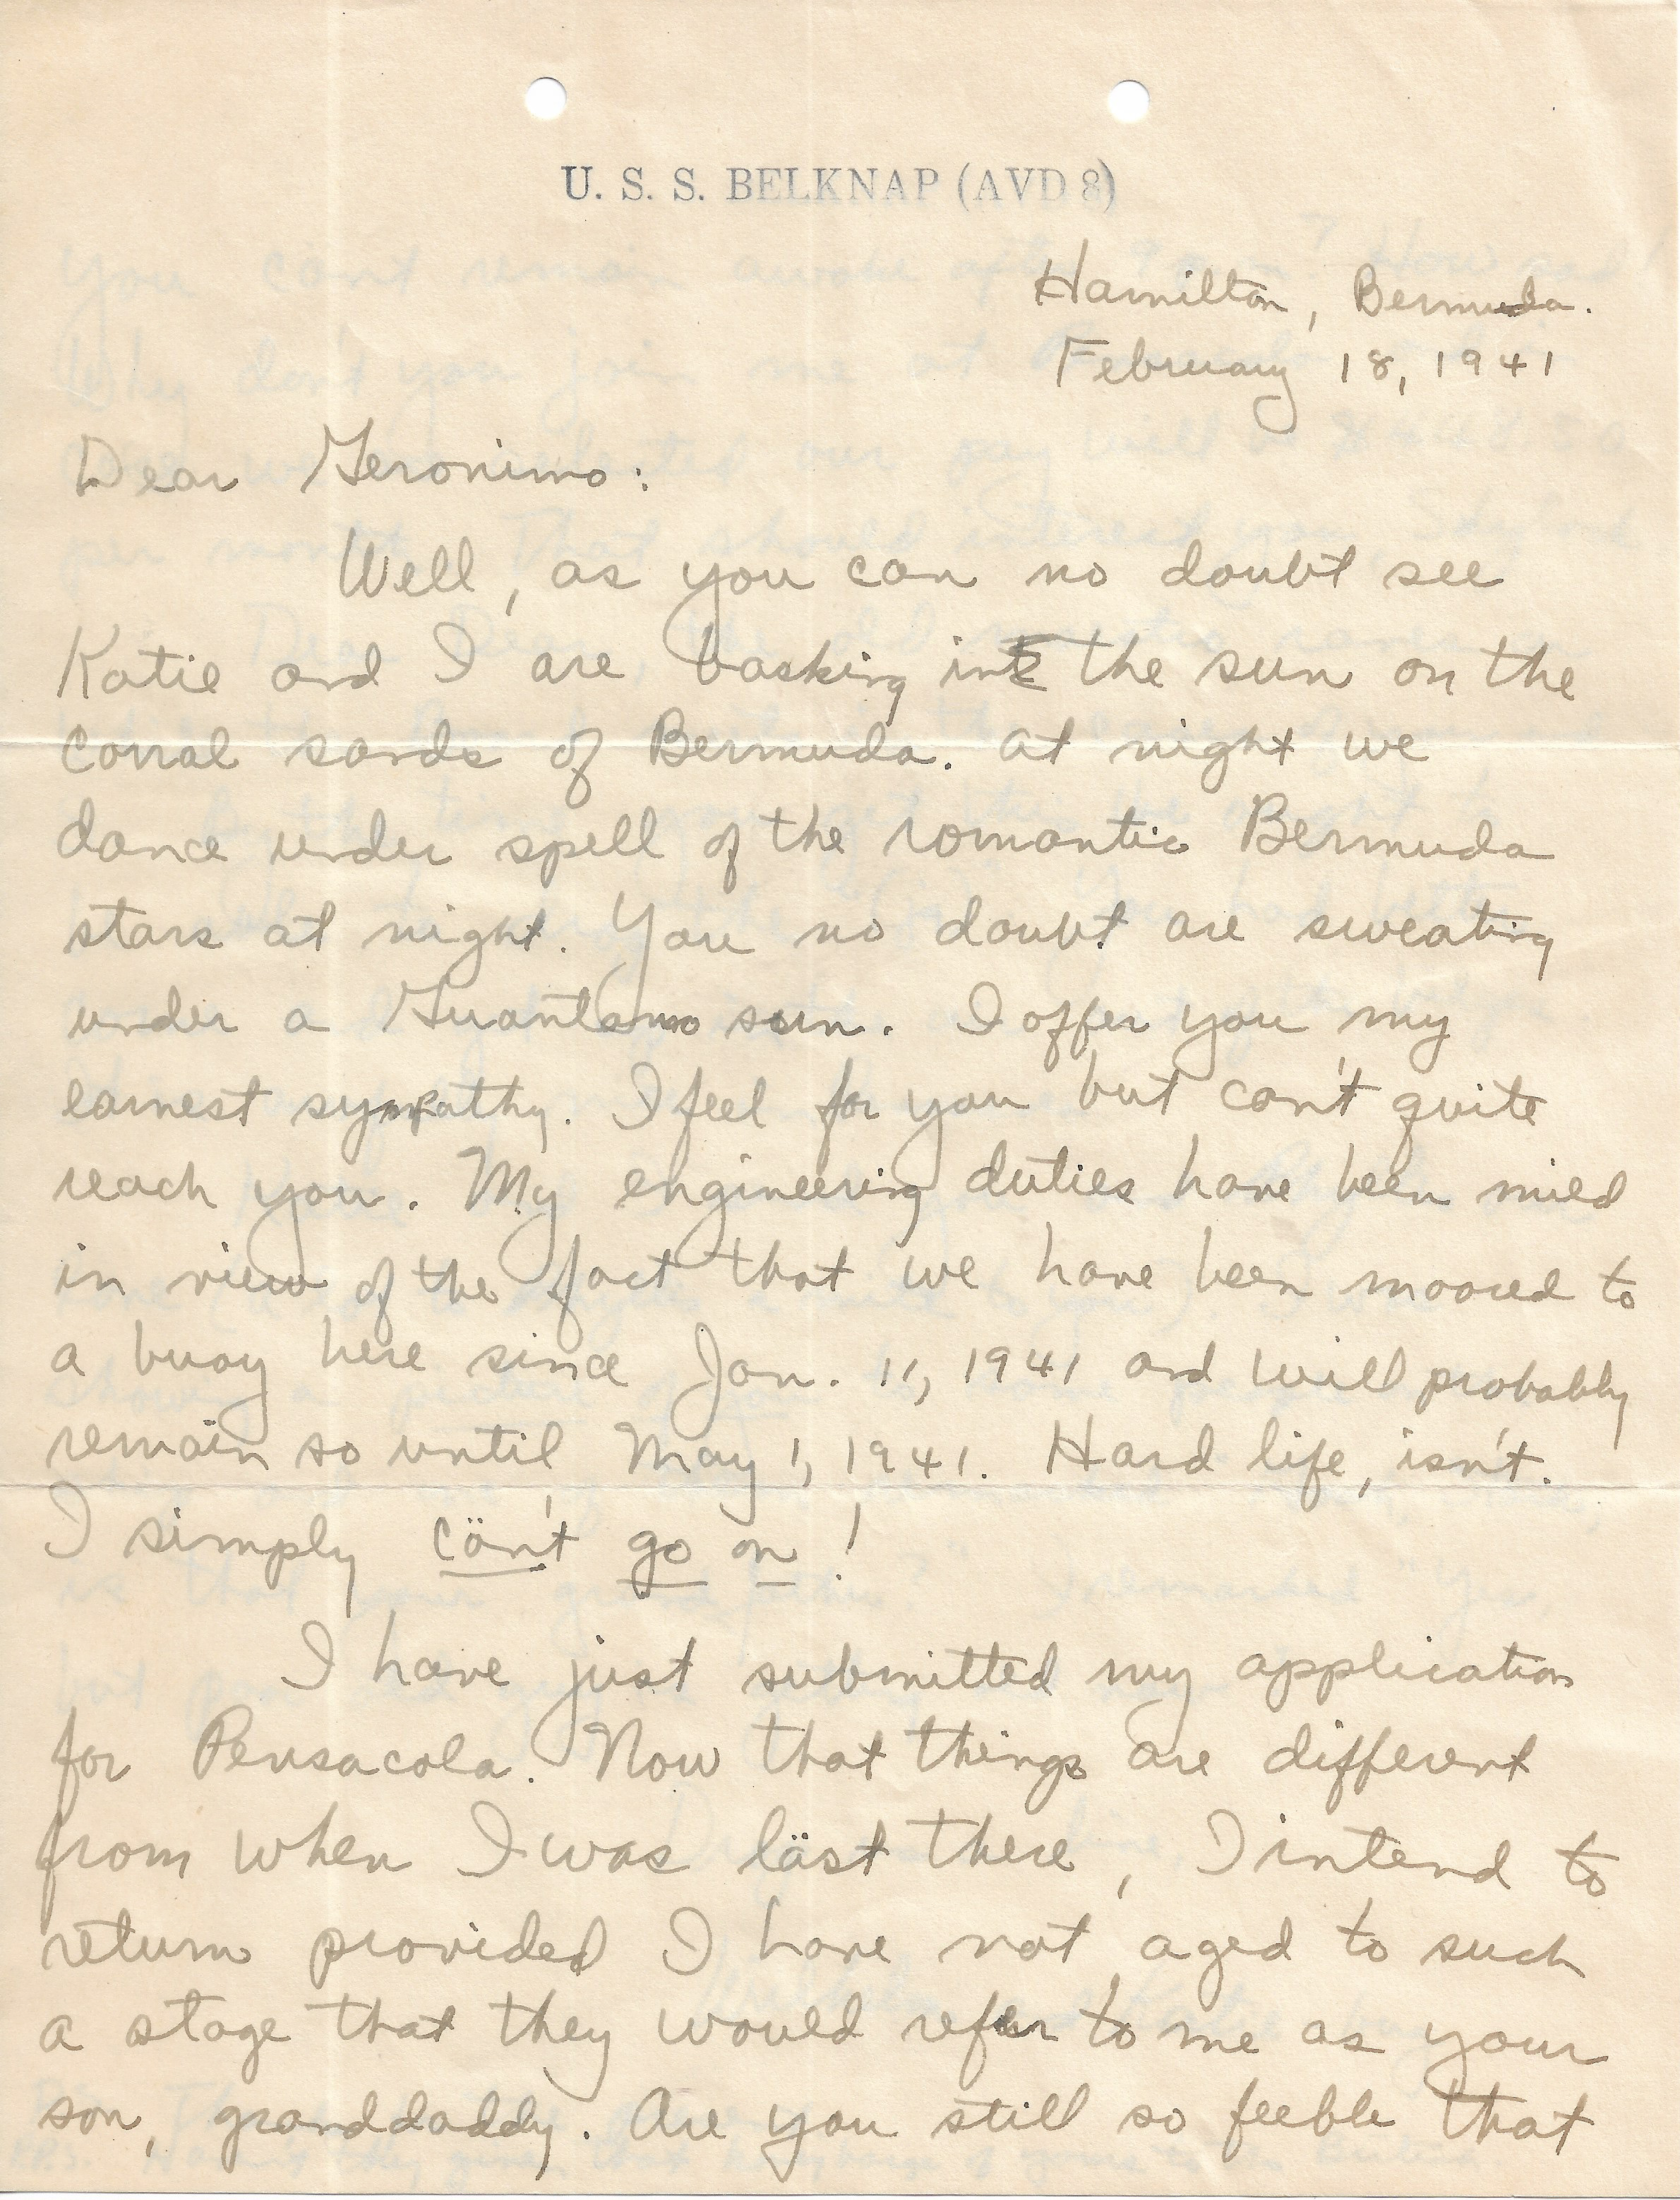 U. S. S. BELKNAP (AVD 8)
Hamilton, Bermuda.
February 18, 1941
Dear Geronimo:
Well, as you can no doubt see
Katie and I are basking in the sun on the
corral sands of Bermuda. At night we
dance under spell of the romantic Bermuda
stars at night. You no doubt are sweating
under a Guantamo sun. I offer you my
earnest sympathy. I feel for you but can't quite
reach you. My engineering duties have been mied
in view of the fact that we have been moored to
a buoy here since Jan. 11, 1941 and will probably
remain so until May 1, 1941. Hard life, isn't.
I simply cän't go on!
I have just submitted my application
for Pensacola. Now that things are different
from when I was läst there, I intend to
return provided I have not aged to such
a stage that they would refer to me as your
son, granddaddy. Are you still so feeble that